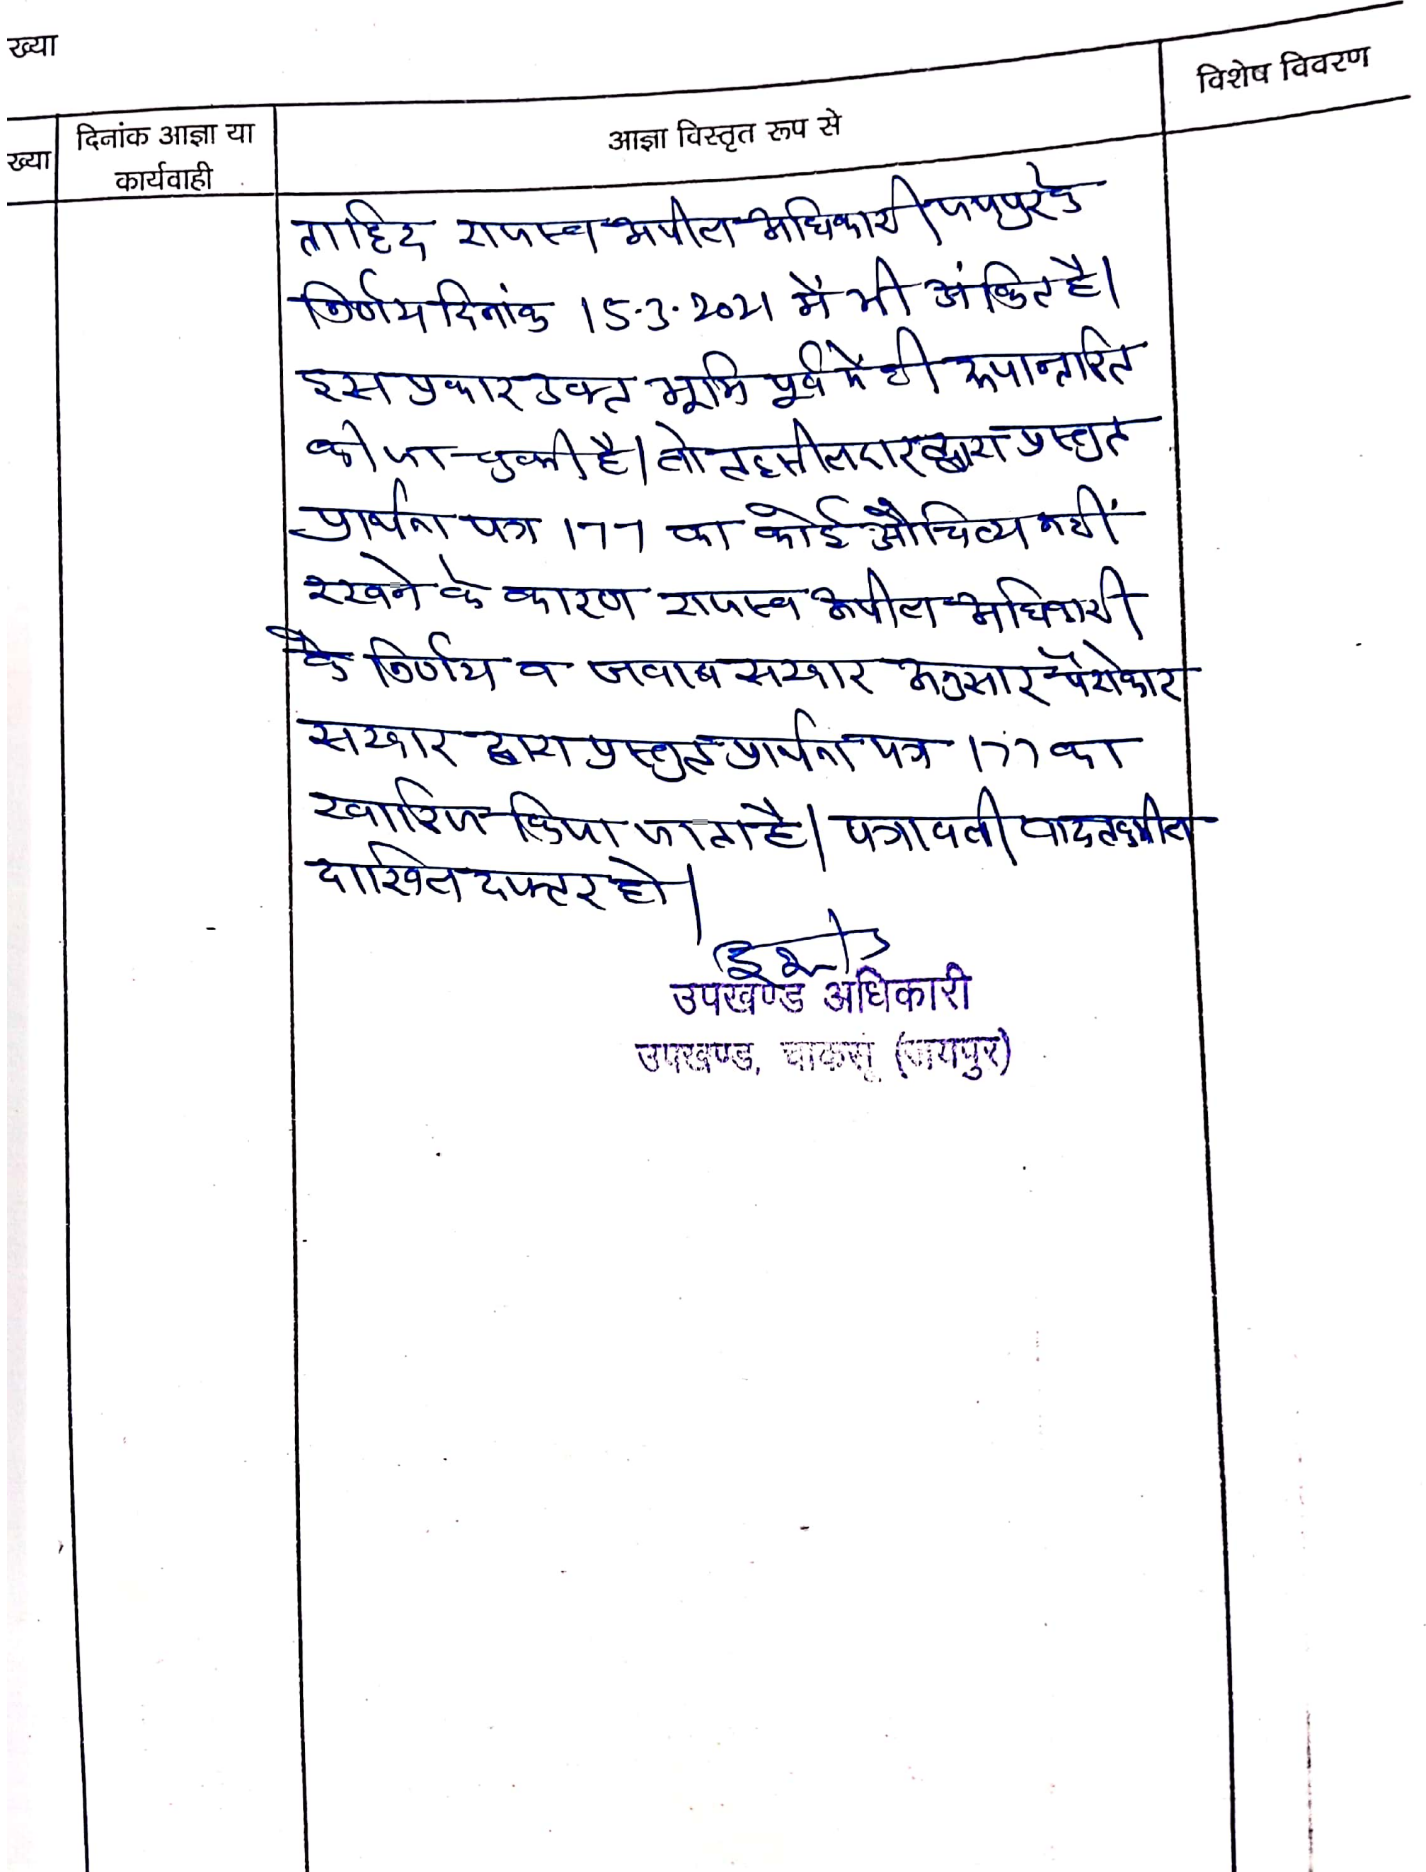 ख्या
विशेष विवरण
ख्या
दिनांक आज्ञा या
कार्यवाही
आज्ञा विस्तृत रूप से
राजस्व अपील अधिकारी जयपुर के
निर्णय दिनांक 15.3.2021 में भी अंकित है।
इस प्रकार उक्त भूमि पूर्व में ही रूपान्तरित
की जा चुकी है। तो तहसीलदार द्वारा प्रस्तुत
प्रार्थना पत्र 177 का कोई औचित्य नहीं
रखने के कारण राजस्व अपील अधिकारी
के निर्णय व जवाब सरकार अनुसार पैरोकार
सरकार द्वारा प्रस्तुत प्रार्थना पत्र 177 का
खारिज किया जाता है। पत्रावली बाद तकमील
दाखिल दफ्तर हो।
उपखण्ड अधिकारी
उपखण्ड, चाकसू (जयपुर)